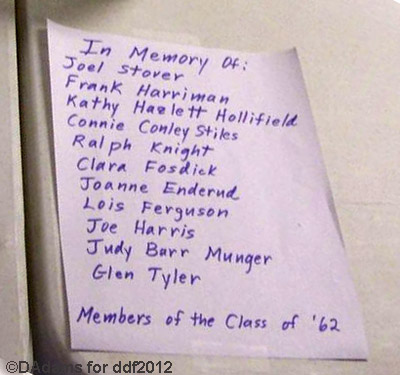 In Memory Of:
Joel Stover
Frank Harriman
Kathy Hazlett Hollifield
Connie Conley Stiks
Ralph Knight
Clara Fosdick
Joanne Enderud
Lois Ferguson
Joe Harris
Judy Barr Munger
Glen Tyler
Members of the Class of '62
©DAdams for ddf2012